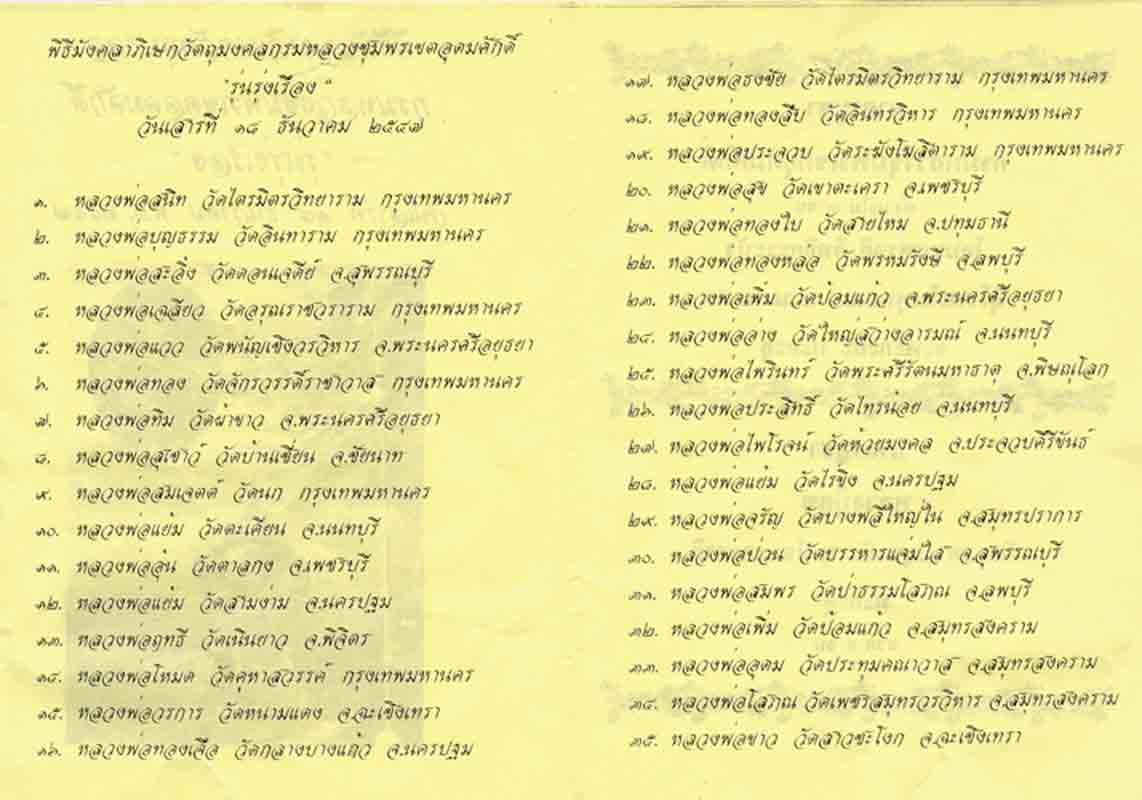 พิธีมังคลาภิเษกวัตถุมงคลกรมหลวงชุมพรเขตอุดมศักดิ์
"รุ่นรุ่งเรือง"
วันเสาร์ที่ ๑๘ ธันวาคม ๒๕๔๗
๑. หลวงพ่อสนิท วัดไตรมิตรวิทยาราม กรุงเทพมหานคร
๒. หลวงพ่อบุญธรรม วัดอินทาราม กรุงเทพมหานคร
๓. หลวงพ่อสะอิ้ง วัดดอนเจดีย์ จ.สุพรรณบุรี
๔. หลวงพ่อเฉลียว วัดอรุณราชวราราม กรุงเทพมหานคร
๕. หลวงพ่อแวว วัดพนัญเชิงวรวิหาร จ.พระนครศรีอยุธยา
๖. หลวงพ่อทอง วัดจักรวรรดิ์ราชาวาส กรุงเทพมหานคร
๗. หลวงพ่อทิม วัดผ้าขาว จ.พระนครศรีอยุธยา
๘. หลวงพ่อสุเชาว์ วัดบ้านเชี่ยน จ.ชัยนาท
๙. หลวงพ่อสมเจตต์ วัดนก กรุงเทพมหานคร
๑๐. หลวงพ่อแย้ม วัดตะเคียน จ.นนทบุรี
๑๑. หลวงพ่ออุ้น วัดตาลกง จ.เพชรบุรี
๑๒. หลวงพ่อแย้ม วัดสามง่าม จ.นครปฐม
๑๓. หลวงพ่อฤทธิ์ วัดเนินยาว จ.พิจิตร
๑๔. หลวงพ่อโหมด วัดคูหาสวรรค์ กรุงเทพมหานคร
๑๕. หลวงพ่อวรการ วัดหนามแดง จ.ฉะเชิงเทรา
๑๖. หลวงพ่อทองเจือ วัดกลางบางแก้ว จ.นครปฐม
๑๗. หลวงพ่อธงชัย วัดไตรมิตรวิทยาราม กรุงเทพมหานคร
๑๘. หลวงพ่อทองสืบ วัดอินทรวิหาร กรุงเทพมหานคร
๑๙. หลวงพ่อประจวบ วัดระฆังโฆสิตาราม กรุงเทพมหานคร
๒๐. หลวงพ่อสุข วัดเขาตะเครา จ.เพชรบุรี
๒๑. หลวงพ่อทองใบ วัดสายไหม จ.ปทุมธานี
๒๒. หลวงพ่อทองหล่อ วัดพรหมรังษี จ.ลพบุรี
๒๓. หลวงพ่อเพิ่ม วัดป้อมแก้ว จ.พระนครศรีอยุธยา
๒๔. หลวงพ่ออ่าง วัดใหญ่สว่างอารมณ์ จ.นนทบุรี
๒๕. หลวงพ่อไพรินทร์ วัดพระศรีรัตนมหาธาตุ จ.พิษณุโลก
๒๖. หลวงพ่อประสิทธิ์ วัดไทรน้อย จ.นนทบุรี
๒๗. หลวงพ่อไพโรจน์ วัดห้วยมงคล จ.ประจวบคีรีขันธ์
๒๘. หลวงพ่อแย้ม วัดไร่ขิง จ.นครปฐม
๒๙. หลวงพ่อจรัญ วัดบางพลีใหญ่ใน จ.สมุทรปราการ
๓๐. หลวงพ่อป่วน วัดบรรหารแจ่มใส จ.สุพรรณบุรี
๓๑. หลวงพ่อสมพร วัดป่าธรรมโสภณ จ.ลพบุรี
๓๒. หลวงพ่อเพิ่ม วัดป้อมแก้ว จ.สมุทรสงคราม
๓๓. หลวงพ่ออุดม วัดประทุมคณาวาส จ.สมุทรสงคราม
๓๔. หลวงพ่อโสภณ วัดเพชรสมุทรวรวิหาร จ.สมุทรสงคราม
๓๕. หลวงพ่อขาว วัดสาวชะโงก จ.ฉะเชิงเทรา